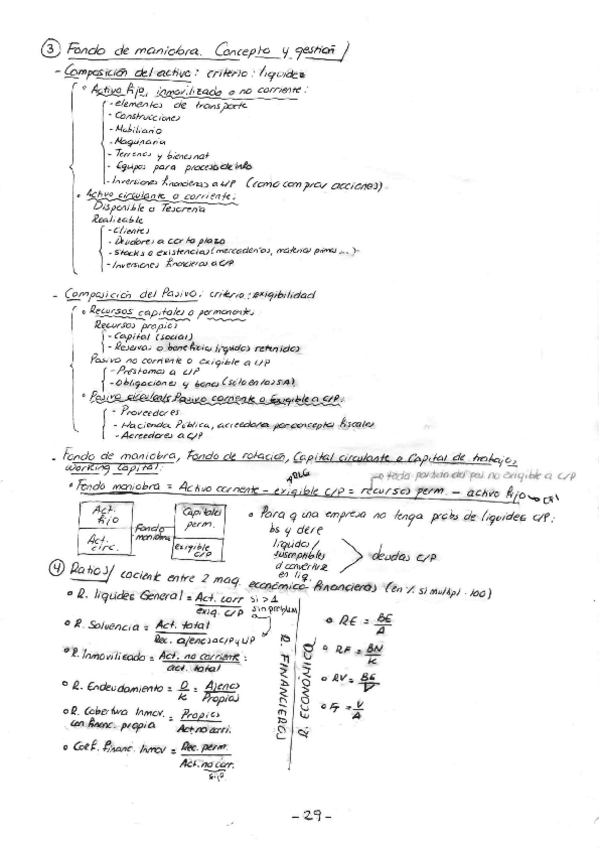 ③ Fondo de maniobra. Concepto y gestión
- Composición del activo: criterio: liquidez
• Activo fijo, inmovilizado o no corriente:
- elementos de transporte
- Construcciones
- Mobiliario
- Maquinaria
- Terrenos y bienes nat
- Equipos para proceso de info
- Inversiones financieras a L/P (como comprar acciones)
• Activo circulante o corriente:
Disponible o Tesorería
Realizable
- Clientes
- Deudores a corto plazo
- Stocks o existencias (mercaderías, materias primas ...)
- Inversiones financieras a C/P
- Composición del Pasivo: criterio: exigibilidad
• Recursos capitales o permanentes:
Recursos propios
- Capital (social)
- Reservas o beneficios líquidos retenidos
Pasivo no corriente o exigible a L/P
- Préstamos a L/P
- Obligaciones y bonos (solo en las SA)
• Pasivo circulante Pasivo corriente o Exigible a C/P:
- Proveedores
- Hacienda Pública, acreedora por conceptos fiscales
- Acreedores a C/P
- Fondo de maniobra, Fondo de rotación, Capital circulante o Capital de trabajo,
Working Capital:
→ toda partida del pas. no exigible a C/P
• Fondo maniobra = Activo corriente - exigible C/P = recursos perm. - activo fijo
Act. fijo
Act. circ.
Fondo maniobra
Capitales perm.
exigible C/P
• Para q una empresa no tenga probs de liquidez C/P:
bs y dere
líquidos/
susceptibles
d convertirse
en liq.
deudas C/P
④ Ratios/ cociente entre 2 mag. económico-financieros (en % si multipl. · 100)
• R. liquidez General = Act. corr / exig. C/P si > 1
• R. Solvencia = Act. total / Rec. ajenos a C/P y L/P
• R. Inmovilizado = Act. no corriente / act. total
• R. Endeudamiento = D / K = Ajenos / Propios
• R. Cobertura Inmov. con financ. propia = Propios / Act no corri.
• Coef. financ. Inmov = Rec. perm. / Act. no corr.
R. FINANCIEROS
R. ECONÓMICOS
• RE = BE / A
• RF = BN / K
• RV = BE / V
• = V / A
- 29 -